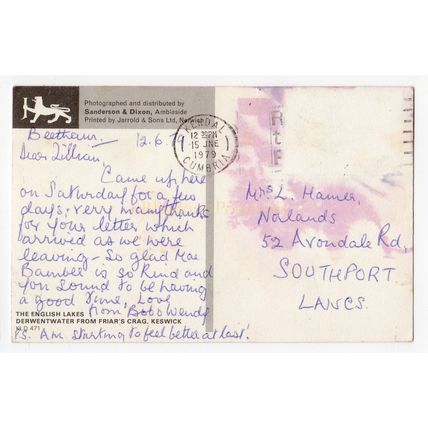 Photographed and distributed by
Sanderson & Dixon, Ambleside
Printed by Jarrold & Sons Ltd, Norwich
Beetham. 12.6.79
Dear Lillian,
Came up here
on Saturday for a few
days, very many thanks
for your letter which
arrived as we were
leaving - So glad Mrs
is so kind and
you sound to be having
a good time, Love
from Bob & Wendy
THE ENGLISH LAKES
DERWENTWATER FROM FRIAR'S CRAG, KESWICK
KLD 471
P.S. Am starting to feel better at last!
KENDAL
12 PM
15 JNE
1979
CUMBRIA
Mrs L. Hamer,
Norlands
52 Avondale Rd,
SOUTHPORT
LANCS.